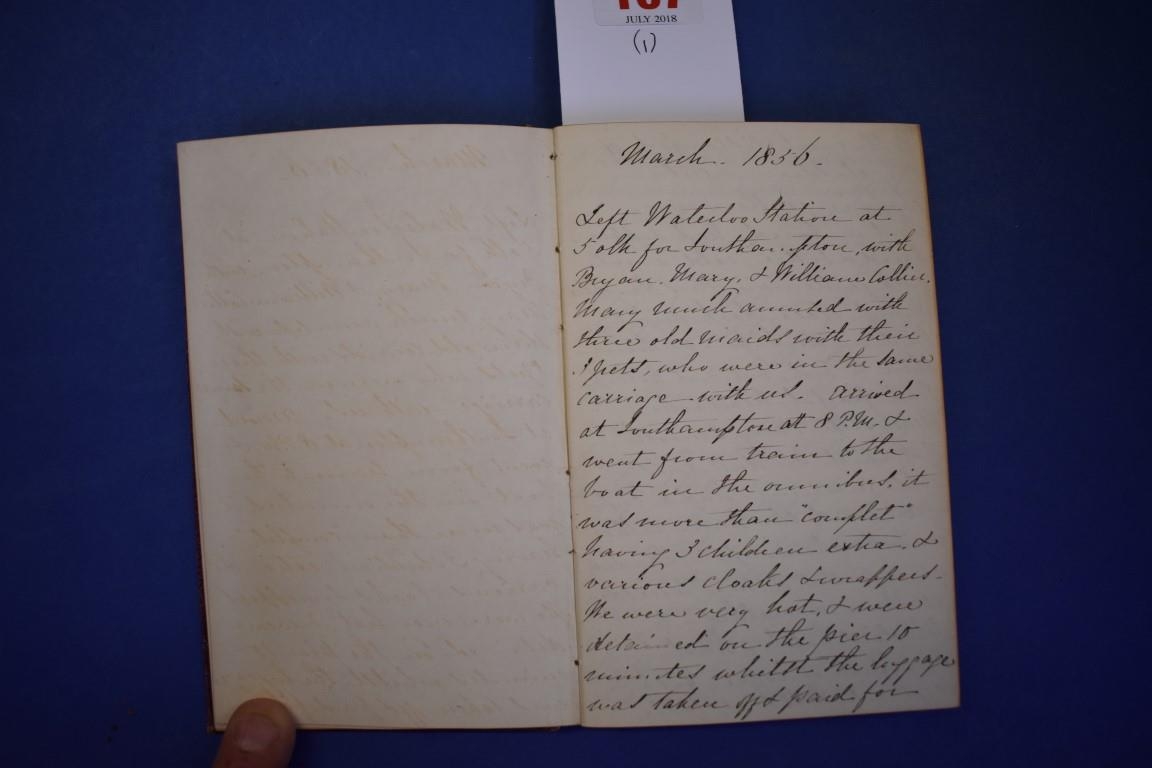 107
JULY 2018
(1)
March. 1856.
Left Waterloo Station at
5 olk for Southampton, with
Bryan. Mary. & William Collier.
Mary much amused with
three old maids with their
3 pets, who were in the same
carriage with us. arrived
at Southampton at 8 P.M. &
went from train to the
boat in the omnibus. it
was more than "complet"
having 3 children extra. &
various cloaks & wrappers.
We were very hot, & were
detained on the pier 10
minutes whilst the luggage
was taken off & paid for